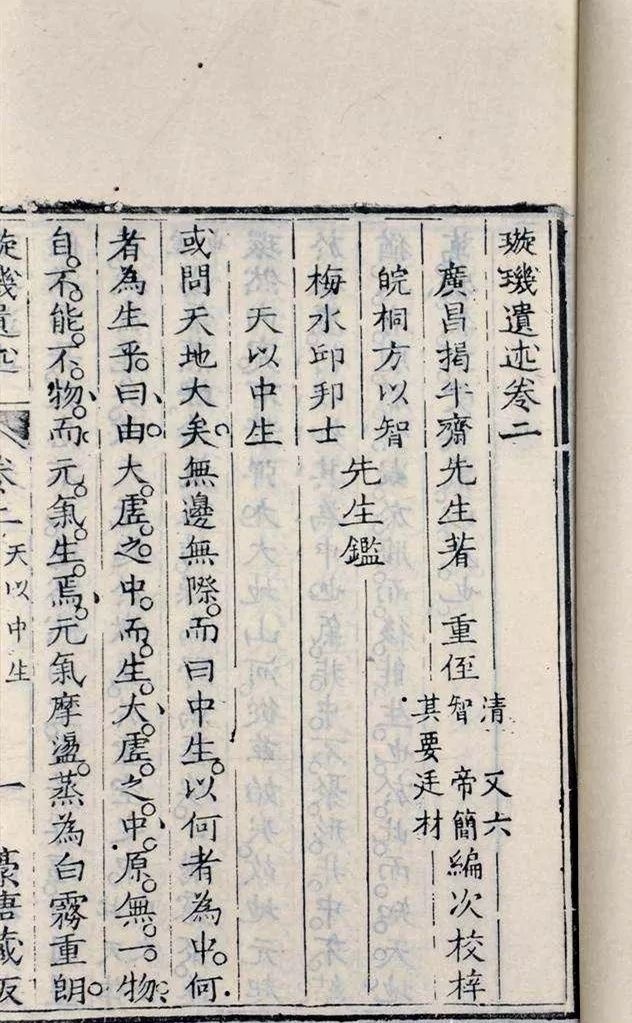 璇璣遺述卷二
廣昌揭半齋先生著 重侄
清 又六
智 帝簡
其要 廷材
編次校梓
皖桐方以智
梅水邱邦士
先生鑑
天以中生
或問天地大矣。無邊無際。而曰中生。以何者為中。何
者為生乎。曰由大虛之中而生。大虛之中。原無一物。
自不能不物。而元氣生焉。元氣摩盪。蒸為白霧重朗。
璇璣遺述
卷二
天以中生
一
藏板